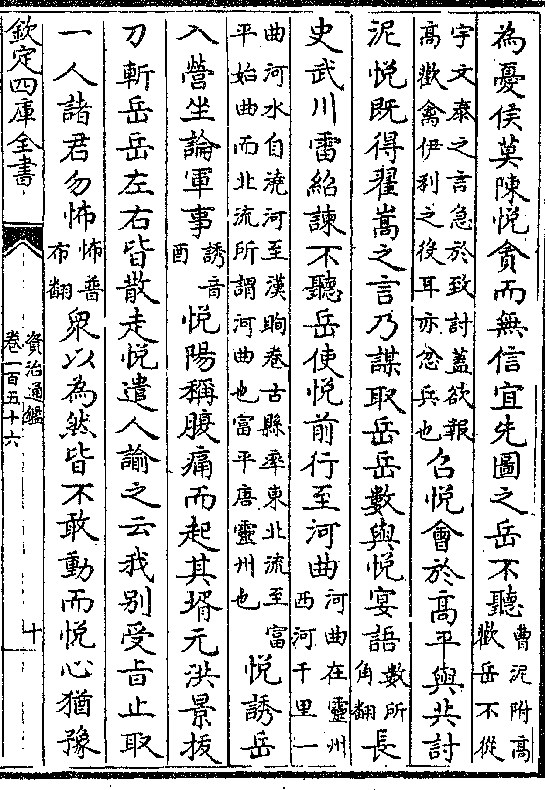 為憂侯莫陳悦貪而無信宜先圖之岳不聽曹泥附高歡岳不從
宇文泰之言急於致討蓋欲報高歡禽伊利之後耳亦忿兵也召悦會於高平與共討
泥悦既得翟嵩之言乃謀取岳岳數與悦宴語數所角翻長
史武川雷紹諫不聽岳使悦前行至河曲河曲在靈州西河千里一
曲河水自澆河至漢眴卷古縣率東北流至富平始曲而北流所謂河曲也富平唐靈州也悦誘岳
入營坐論軍事誘音酉悦陽稱腹痛而起其壻元洪景拔
刀斬岳岳左右皆散走悦遣人諭之云我别受旨止取
一人諸君勿怖怖普布翻衆以為然皆不敢動而悦心猶豫
欽定四庫全書
資治通鑑
卷一百五十六
十